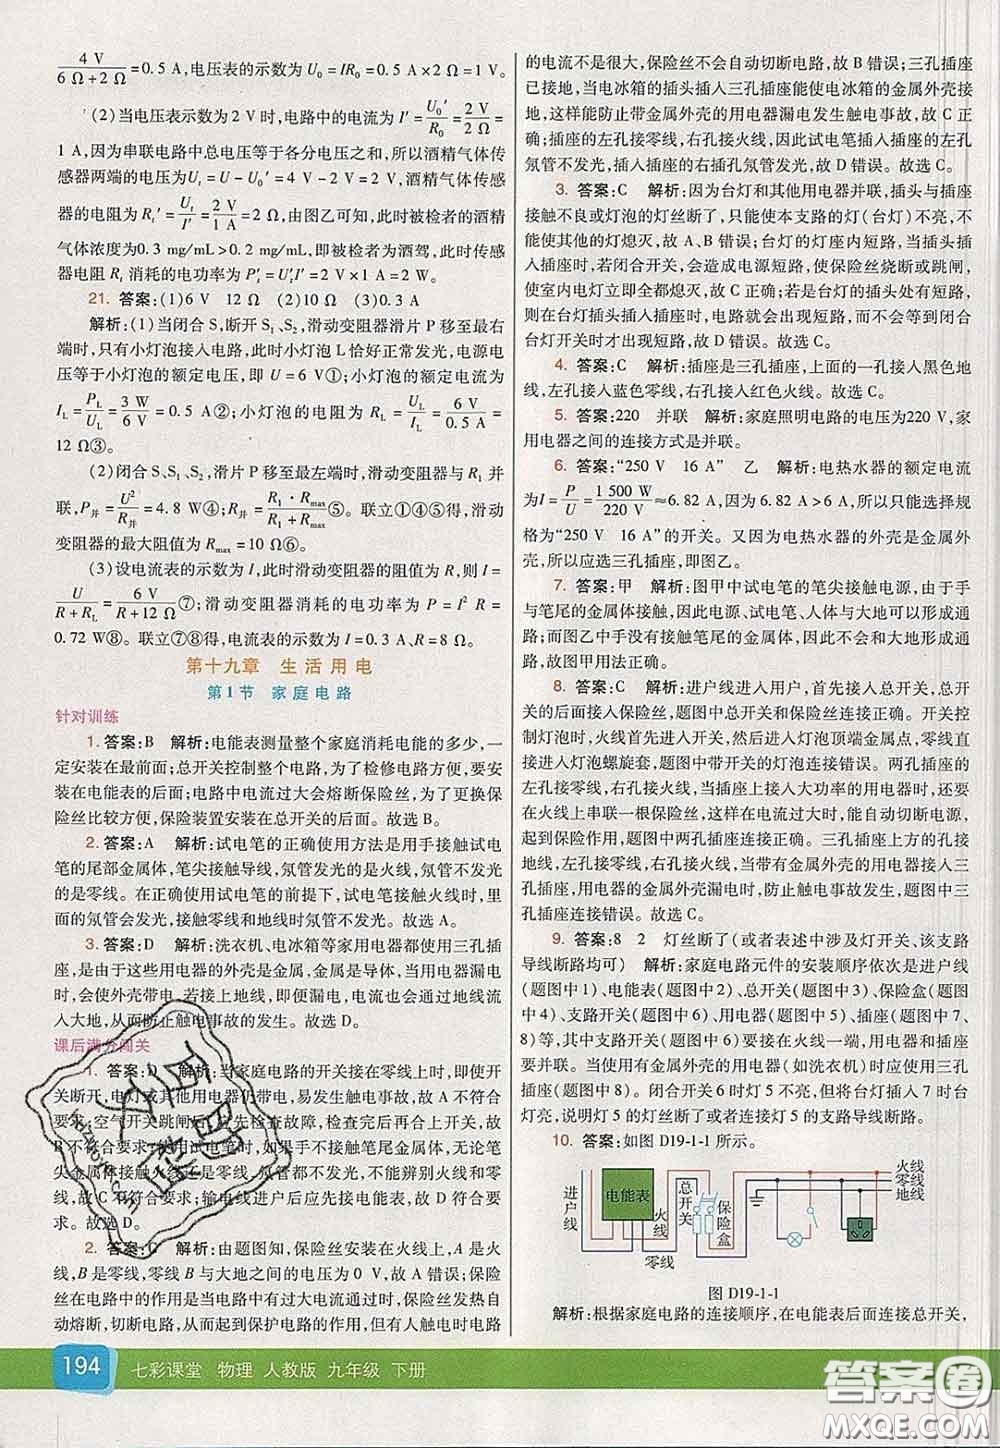 4 V/(6 Ω+2 Ω)=0.5 A,电压表的示数为 U₀=IR₀=0.5 A×2 Ω=1 V。
(2)当电压表示数为 2 V 时,电路中的电流为 I′=U₀′/R₀=2 V/2 Ω=
1 A,因为串联电路中总电压等于各分电压之和,所以酒精气体传
感器两端的电压为Uₜ=U-U₀′=4 V-2 V=2 V,酒精气体传感
器的电阻 Rₜ′=Uₜ/I′=2 V/1 A=2 Ω,由图乙可知,此时被检者的酒精
气体浓度为0.3 mg/mL>0.2 mg/mL,即被检者为酒驾,此时传感
器电阻 Rₜ 消耗的电功率为 Pₜ′=Uₜ′I′=2 V×1 A=2 W。
21. 答案:(1)6 V 12 Ω (2)10 Ω (3)0.3 A
解析:(1)当闭合 S,断开 S₁、S₂,滑动变阻器滑片 P 移至最右
端时,只有小灯泡接入电路,此时小灯泡 L 恰好正常发光,电源电
压等于小灯泡的额定电压,即 U=6 V①;小灯泡的额定电流为
I_L=P_L/U_L=3 W/6 V=0.5 A②;小灯泡的电阻为 R_L=U_L/I_L=6 V/0.5 A=
12 Ω③。
(2)闭合 S、S₁、S₂,滑片 P 移至最左端时,滑动变阻器与 R₁ 并
联,P并=U²/R并=4.8 W④;R并=R₁·Rmax/(R₁+Rmax)⑤。联立①④⑤得,滑动
变阻器的最大阻值为 Rmax=10 Ω⑥。
(3)设电流表的示数为 I,此时滑动变阻器的阻值为 R,则 I=
U/(R+R_L)=6 V/(R+12 Ω)⑦;滑动变阻器消耗的电功率为 P=I² R=
0.72 W⑧。联立⑦⑧得,电流表的示数为 I=0.3 A,R=8 Ω。
第十九章 生活用电
第1节 家庭电路
针对训练
1. 答案:B 解析:电能表测量整个家庭消耗电能的多少,一
定安装在最前面;总开关控制整个电路,为了检修电路方便,要安
装在电能表的后面;电路中电流过大会熔断保险丝,为了更换保
险丝比较方便,保险装置安装在总开关的后面。故选 B。
2. 答案:A 解析:试电笔的正确使用方法是用手接触试电
笔的尾部金属体,笔尖接触导线,氖管发光的是火线,氖管不发光
的是零线。在正确使用试电笔的前提下,试电笔接触火线时,里
面的氖管会发光,接触零线和地线时氖管不发光。故选 A。
3. 答案:D 解析:洗衣机、电冰箱等家用电器都使用三孔插
座,是由于这些用电器的外壳是金属,金属是导体,当用电器漏电
时,会使外壳带电,若接上地线,即使漏电,电流也会通过地线流
入大地,从而防止触电事故的发生。故选 D。
课后满分闯关
1. 答案:D 解析:当家庭电路的开关接在零线上时,即使开
关断开,电灯或其他用电器仍带电,易发生触电事故,故 A 不符合要
求;空气开关跳闸后,应首先检查、排除故障,然后再闭合开关,故
B 不符合要求;使用试电笔时,如果手不接触笔尾金属体,无论笔
尖金属体接触火线还是零线,氖管都不发光,不能辨别火线和零
线,故 C 不符合要求;输电线进户后应先接电能表,故 D 符合要
求。故选 D。
2. 答案:C 解析:由题图知,保险丝安装在火线上,A 是火
线,B 是零线,零线 B 与大地之间的电压为 0 V,故 A 错误;保险
丝在电路中的作用是当电路中有过大电流时,保险丝发热自
动熔断,切断电路,从而起到保护电路的作用,但有人触电时电路
的电流不是很大,保险丝不会自动切断电路,故 B 错误;三孔插座
已接地,当电冰箱的插头插入三孔插座能使电冰箱的金属外壳接
地,这样能防止带金属外壳的用电器漏电发生触电事故,故 C 正
确;左孔接零线,右孔接火线,因此试电笔插入插座的左孔
氖管不发光,插入插座的右插孔氖管发光,故 D 错误。故选 C。
3. 答案:C 解析:因为台灯和其他用电器并联,插头与插座
接触不良或灯泡的灯丝断了,只能使本支路的灯(台灯)不亮,不
能使其他的灯熄灭,故 A、B 错误;台灯的灯座内短路,当插头插入
插座时,若闭合开关,会造成电源短路,使保险丝烧断或跳闸,
使室内电灯立即全都熄灭,故 C 正确;若是台灯的插头处有短路,
则在台灯插头插入插座时,电路就会出现短路,而不会等到闭合
台灯开关时才出现短路,故 D 错误。故选 C。
4. 答案:C 解析:插座是三孔插座,上面的一孔接入黑色地
线,左孔接入蓝色零线,右孔接入红色火线。故选 C。
5. 答案:220 并联 解析:家庭照明电路的电压为220 V,家
用电器之间的连接方式是并联。
6. 答案:“250 V 16 A” 乙 解析:电热水器的额定电流
为I=P/U=1 500 W/220 V≈6.82 A,因为 6.82 A>6 A,所以只能选择规
格为“250 V 16 A”的开关。又因为电热水器的外壳是金属外
壳,所以应选三孔插座,即图乙。
7. 答案:甲 解析:图甲中试电笔的笔尖接触电源,由于手
与笔尾的金属体接触,因此电源、试电笔、人体与大地可以形成通
路;而图乙中手没有接触笔尾的金属体,所以不会形成通路。故
图甲用法正确。
8. 答案:C 解析:进户线进入用户,首先接入总开关,总开
关的后面接入保险丝,题图中总开关和保险丝连接正确。开关控
制灯泡时,火线首先进入开关,然后进入灯泡顶端金属点,零线直接
进入灯泡螺旋套,题图中带开关的灯泡连接错误。两孔插座的连接
是左孔接零线,右孔接火线,当插座上接入大功率的用电器时,还应
在火线上串联一根保险丝,这样在电流过大时,能自动切断电源,
起到保险作用,题图中两孔插座连接正确。三孔插座上方的孔接
地线,左孔接零线,右孔接火线,当带有金属外壳的用电器接入三孔
插座,用电器的金属外壳漏电时,防止触电事故发生,题图中三
孔插座连接错误。故选 C。
9. 答案:8 2 灯丝断了(或者表述中涉及灯开关、该支路
导线断路均可) 解析:家庭电路元件的安装顺序依次是进户线
(题图中1)、电能表(题图中2)、总开关(题图中3)、保险盒(题图中
4)、支路开关(题图中6)、用电器(题图中5)、插座(题图中7、8)
等,其中支路开关(题图中6)要接在火线一端,用电器和插座
要并联。当使用有金属外壳的用电器(如洗衣机)时应使用三孔
插座(题图中8)。闭合开关 6 时灯 5 不亮,但将台灯插入 7 时台
灯亮,说明灯 5 的灯丝断了或者连接灯 5 的支路导线断路。
10. 答案:如图 D19-1-1 所示。
进户线
电能表
火线
零线
总开关
保险盒
火线
零线
地线
图 D19-1-1
解析:根据家庭电路的连接顺序,在电能表后面连接总开关,
194 七彩课堂 物理 人教版 九年级 下册
答案圈
MXQE.COM